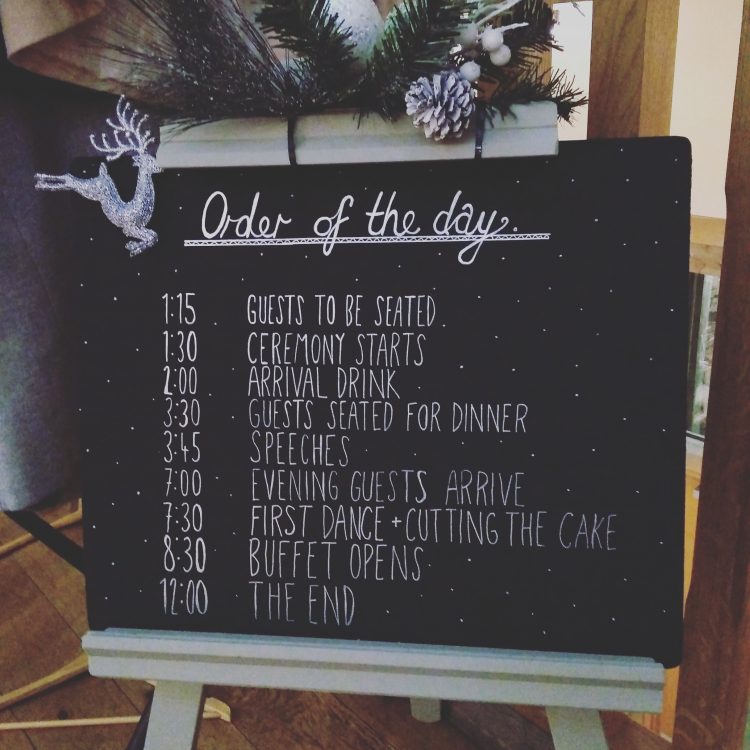 Order of the day.
1:15 GUESTS TO BE SEATED
1:30 CEREMONY STARTS
2:00 ARRIVAL DRINK
3:30 GUESTS SEATED FOR DINNER
3:45 SPEECHES
7:00 EVENING GUESTS ARRIVE
7:30 FIRST DANCE + CUTTING THE CAKE
8:30 BUFFET OPENS
12:00 THE END